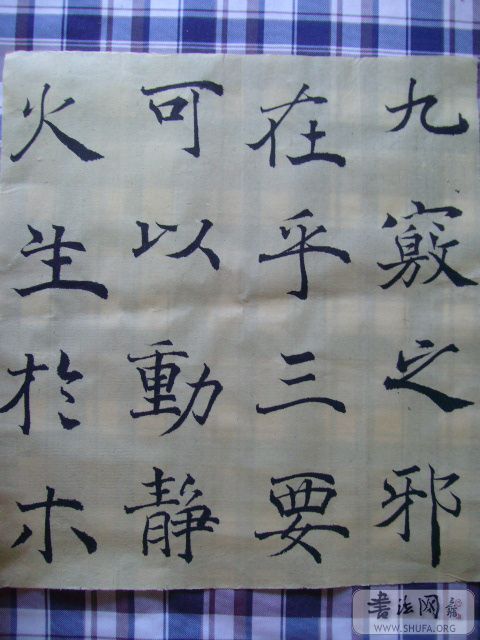 九竅之邪
在乎三要
可以動靜
火生於木
書法网
WWW.SHUFA.ORG